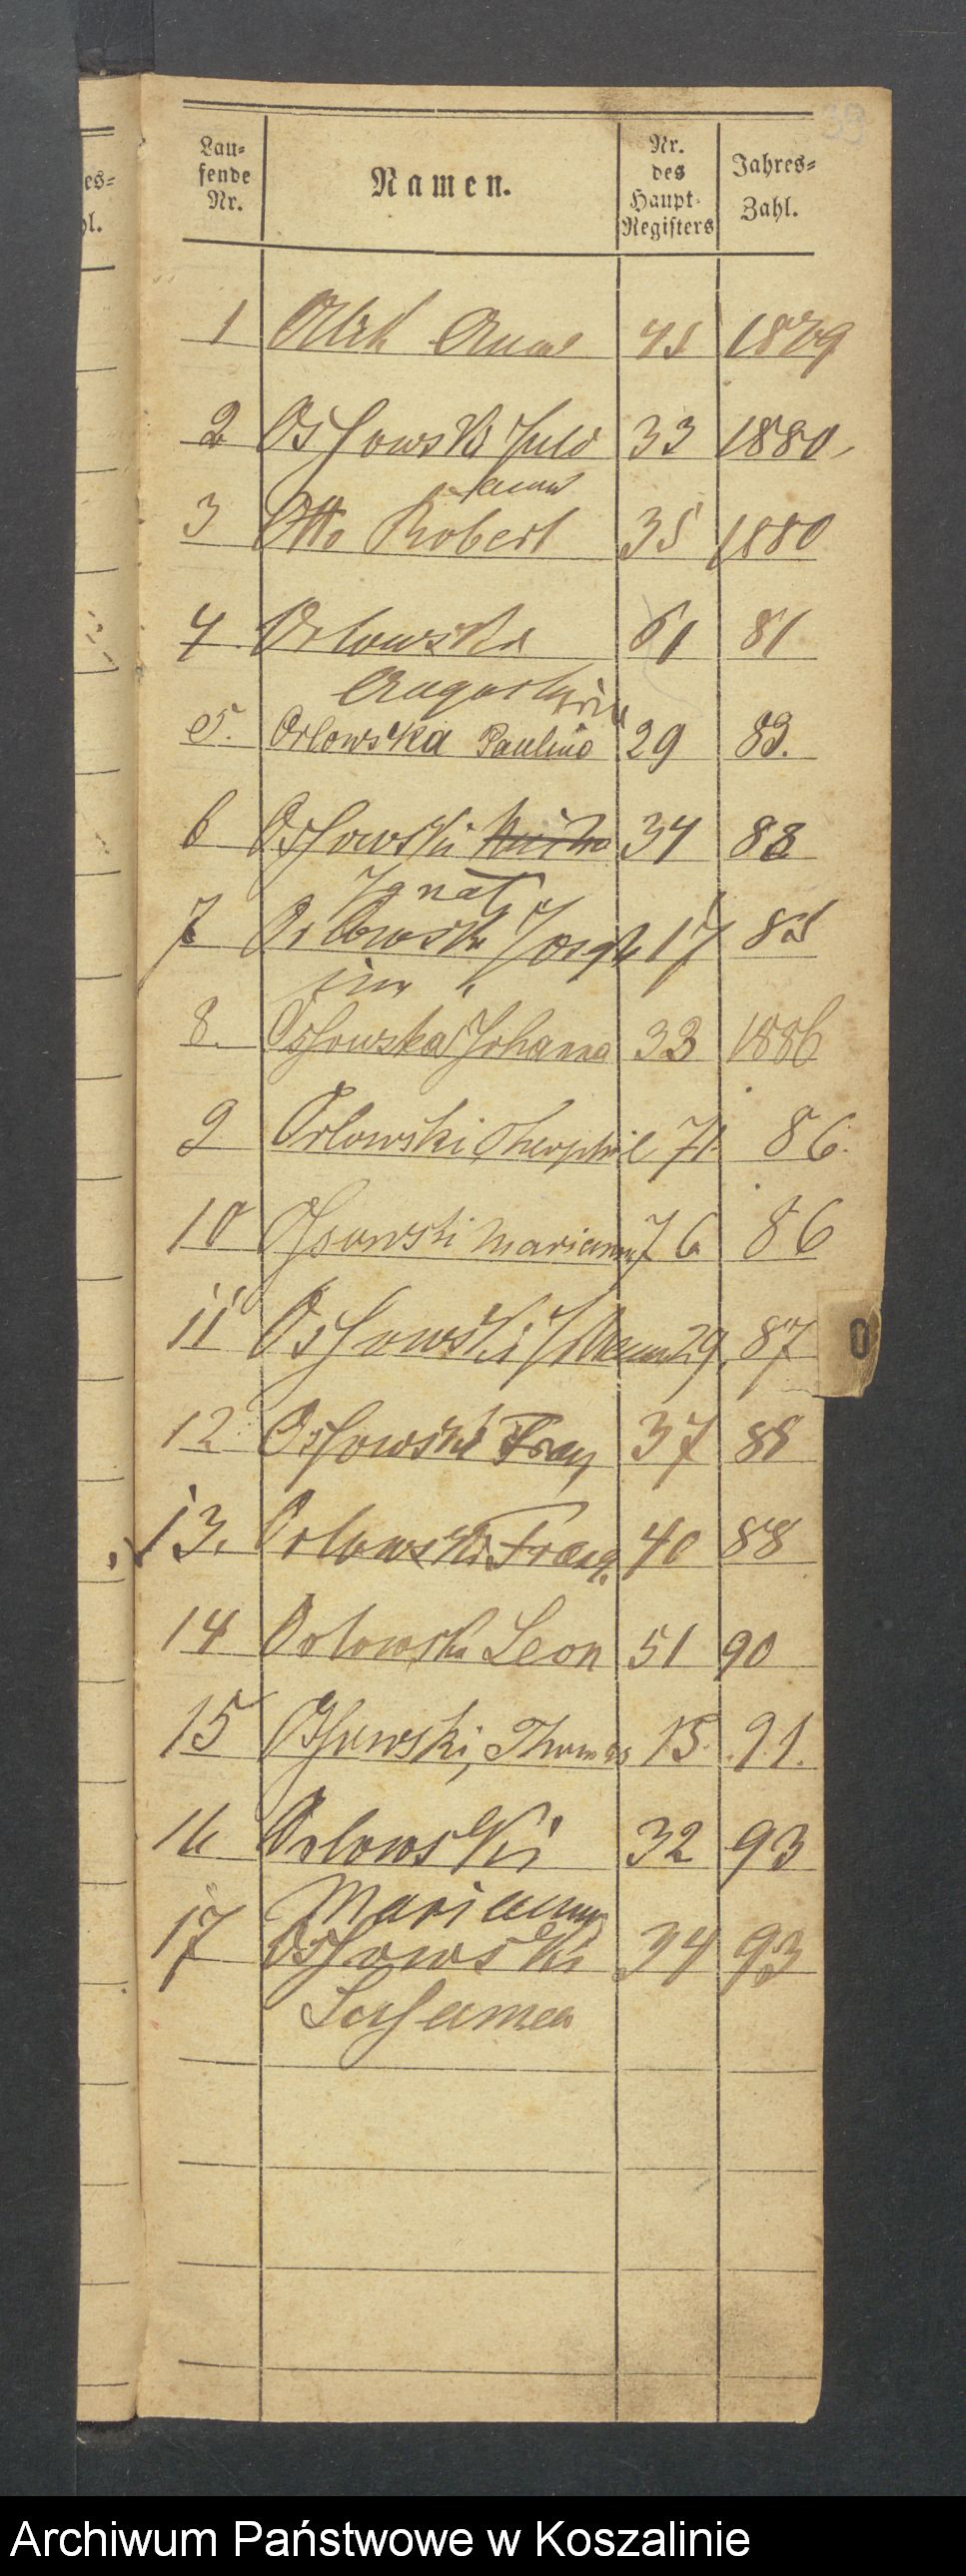 39
Lau-
fende
Nr.
Namen.
Nr.
des
Haupt-
Registers
Jahres-
Zahl.
es-
hl.
1 Anna 45 1879
2 Ossowski 33 1880
3 Otto Robert 35 1880
4 Orlowska 61 81
Augustine
5. Orlowska Pauline 29 83.
6 Ossowski 34 83
Ignatz
7 Orlowski Joseph 17 85
8. Ossowska Johanna 33 1886
9 Orlowski Theophil 71 86.
10 Ossowski Marianna 76 86
11 Ossowski Johann 29 87
O
12 Ossowski Franz 37 88
13. Orlowski Franz 40 88
14 Orlowski Leon 51 90
15 Ossowski, Thomas 15. 91.
16 Orlowski 32 93
Marianna
17 Ossowski 34 93
Archiwum Państwowe w Koszalinie